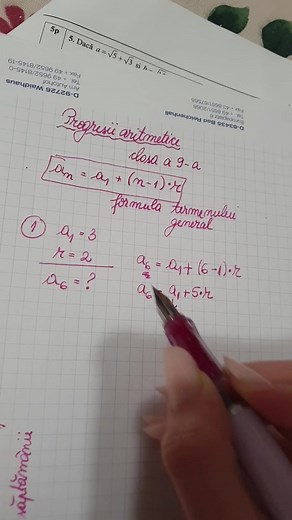 5p
5. Dacă a = √5 + √3 și b
D-92726 Waidhaus
Am Autohof
Tel. + 49 9652/8145-0
Fax + 49 9652/8145-19
D-83435 Bad Reichenhall
Progresii aritmetice
clasa a 9-a
an = a1 + (n-1)·r
formula termenului
general
1
a1 = 3
r = 2
a6 = ?
a6 = a1 + (6-1)·r
a6 a1 + 5·r
săptămânii